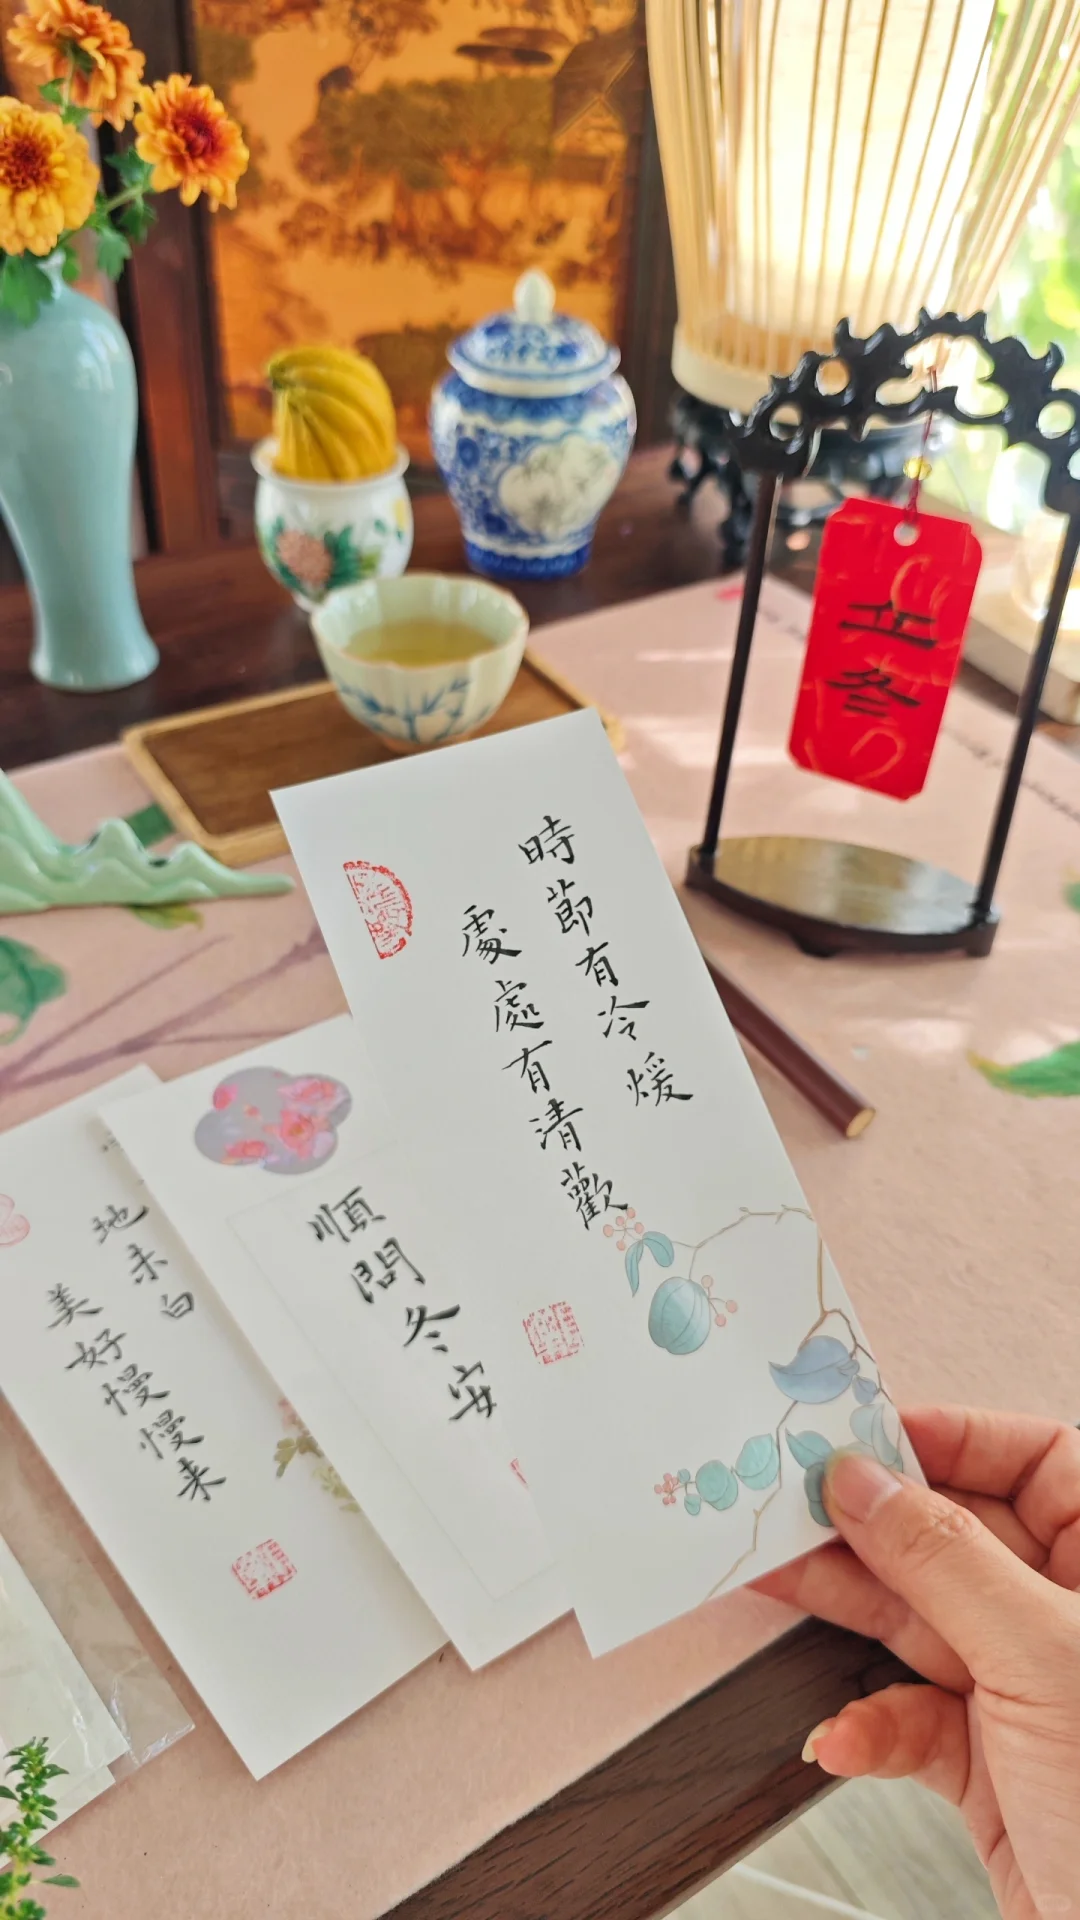 時節有冷暖
處處有清歡
順問冬安
地未白
美好慢慢来
立冬